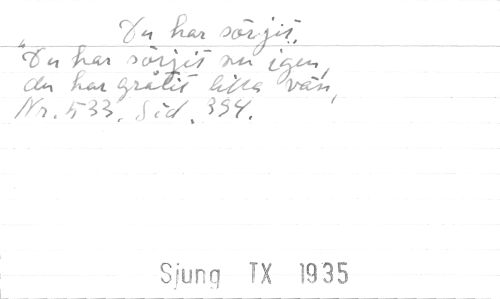 Du har sörjit.
"Du har sörjit nu igen,
du har gråtit lilla vän,
Nr. 533. Sid. 394.
Sjung TX 1935